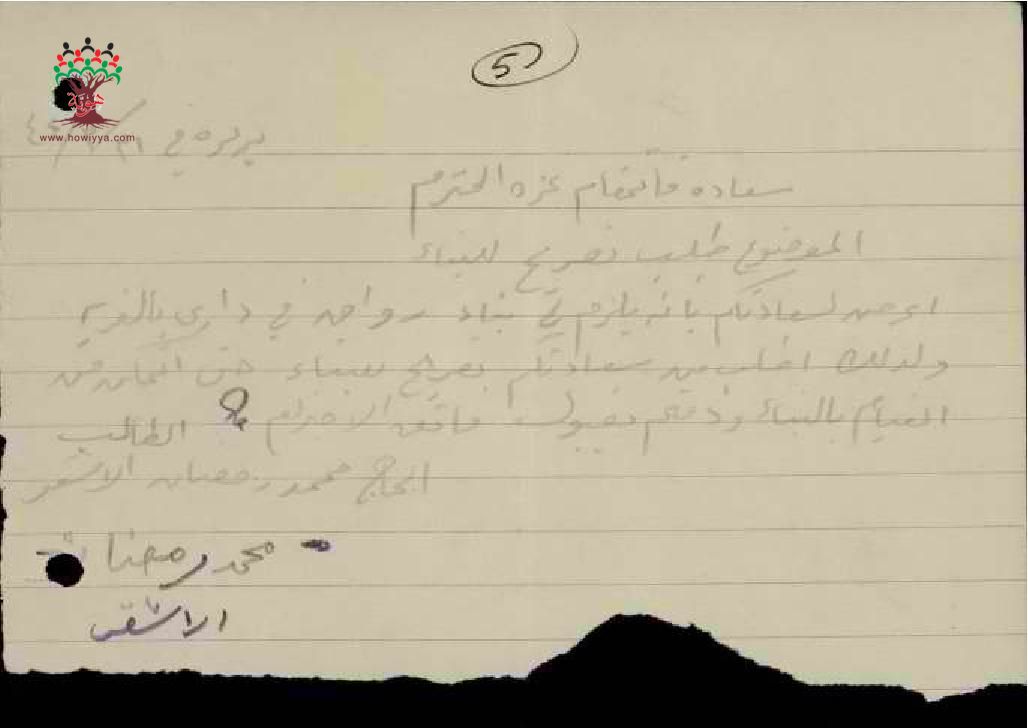 5
هوية
www.howiyya.com
بربره في
سعادة قائمقام غزه المحترم
الموضوع طلب تصريح للبناء
اعرض لسعادتكم بانه يلزم لي بناء في داري بالقريه
ولذلك اطلب من سعادتكم تصريح للبناء حتى اتمكن من
القيام بالبناء وذمتم بقبول فائق الاحترام الطالب
الحاج محمد رمضان الاشقر
محمد رمضان
الاشقر